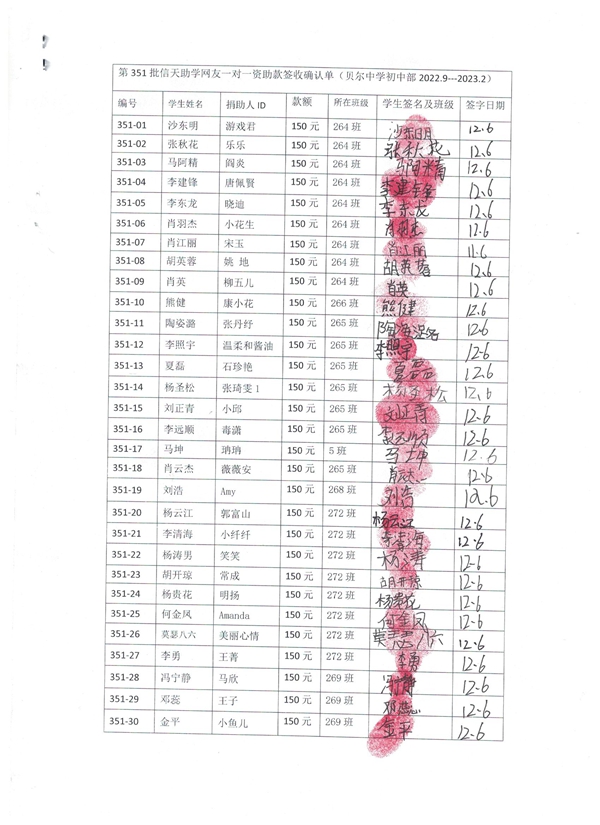 第 351 批信天助学网友一对一资助款签收确认单（贝尔中学初中部 2022.9---2023.2）
编号 学生姓名 捐助人 ID 款额 所在班级 学生签名及班级 签字日期
351-01 沙东明 游戏君 150 元 264 班 沙东明 12.6
351-02 张秋花 乐乐 150 元 264 班 张秋花 12.6
351-03 马阿精 阎炎 150 元 264 班 马阿精 12.6
351-04 李建锋 唐佩賢 150 元 264 班 李建锋 12.6
351-05 李东龙 晓迪 150 元 264 班 李东龙 12.6
351-06 肖羽杰 小花生 150 元 264 班 肖羽杰 12.6
351-07 肖江丽 宋玉 150 元 264 班 肖江丽 11.6
351-08 胡英蓉 姚 地 150 元 264 班 胡英蓉 12.6
351-09 肖英 柳五儿 150 元 264 班 肖英 12.6
351-10 熊健 康小花 150 元 266 班 熊健 12.6
351-11 陶姿潞 张丹纾 150 元 265 班 12.6
351-12 李照宇 温柔和酱油 150 元 265 班 李照宇 12.6
351-13 夏磊 石珍艳 150 元 265 班 夏磊 12.6
351-14 杨圣松 张琦雯 1 150 元 265 班 杨圣松 12.6
351-15 刘正青 小邱 150 元 265 班 刘正青 12-6
351-16 李远顺 毒潇 150 元 265 班 李远顺 12-6
351-17 马坤 琑琑 150 元 5 班 马坤 12.6
351-18 肖云杰 薇薇安 150 元 265 班 12.6
351-19 刘浩 Amy 150 元 268 班 刘浩 12.6
351-20 杨云江 郭富山 150 元 272 班 杨云江 12.6
351-21 李清海 小纤纤 150 元 272 班 李清海 12.6
351-22 杨涛男 笑笑 150 元 272 班 12-6
351-23 胡开琼 常成 150 元 272 班 胡开琼 12-6
351-24 杨贵花 明扬 150 元 272 班 杨贵花 12-6
351-25 何金凤 Amanda 150 元 272 班 何金凤 12-6
351-26 莫瑟八六 美丽心情 150 元 272 班 莫瑟八六 12-6
351-27 李勇 王菁 150 元 272 班 李勇 12-6
351-28 冯宁静 马欣 150 元 269 班 12-6
351-29 邓蕊 王子 150 元 269 班 邓蕊 12.6
351-30 金平 小鱼儿 150 元 269 班 金平 12.6